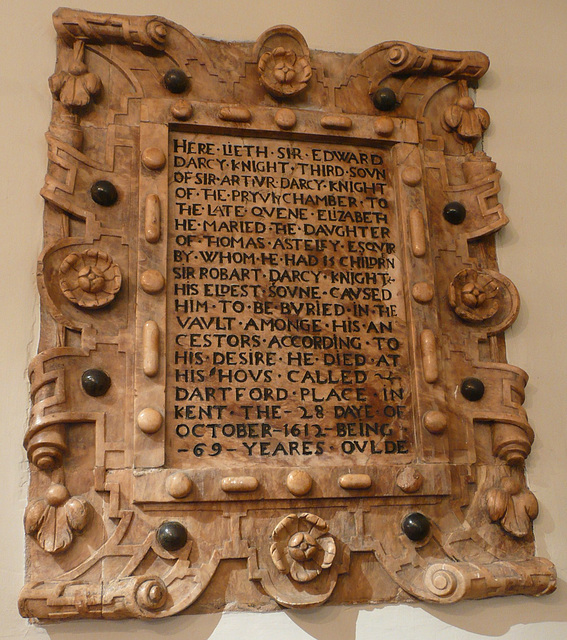 HERE·LIETH·SIR·EDWARD
DARCY·KNIGHT·THIRD·SOVN
OF·SIR·ARTVR·DARCY·KNIGHT
OF·THE·PRYVY·CHAMBER·TO
THE·LATE·QVENE·ELIZABETH
HE·MARIED·THE·DAVGHTER
OF·THOMAS·ASTELEY·ESQVIR
BY·WHOM·HE·HAD·15·CHILDRN
SIR·ROBART·DARCY·KNIGHT·
HIS·ELDEST·SOVNE·CAVSED
HIM·TO·BE·BVRIED·IN·THE
VAVLT·AMONGE·HIS·AN
CESTORS·ACCORDING·TO
HIS·DESIRE·HE·DIED·AT
HIS·HOVS·CALLED
DARTFORD·PLACE·IN
KENT·THE-28·DAYE·OF
OCTOBER-1612-BEING
-69-YEARES·OVLDE